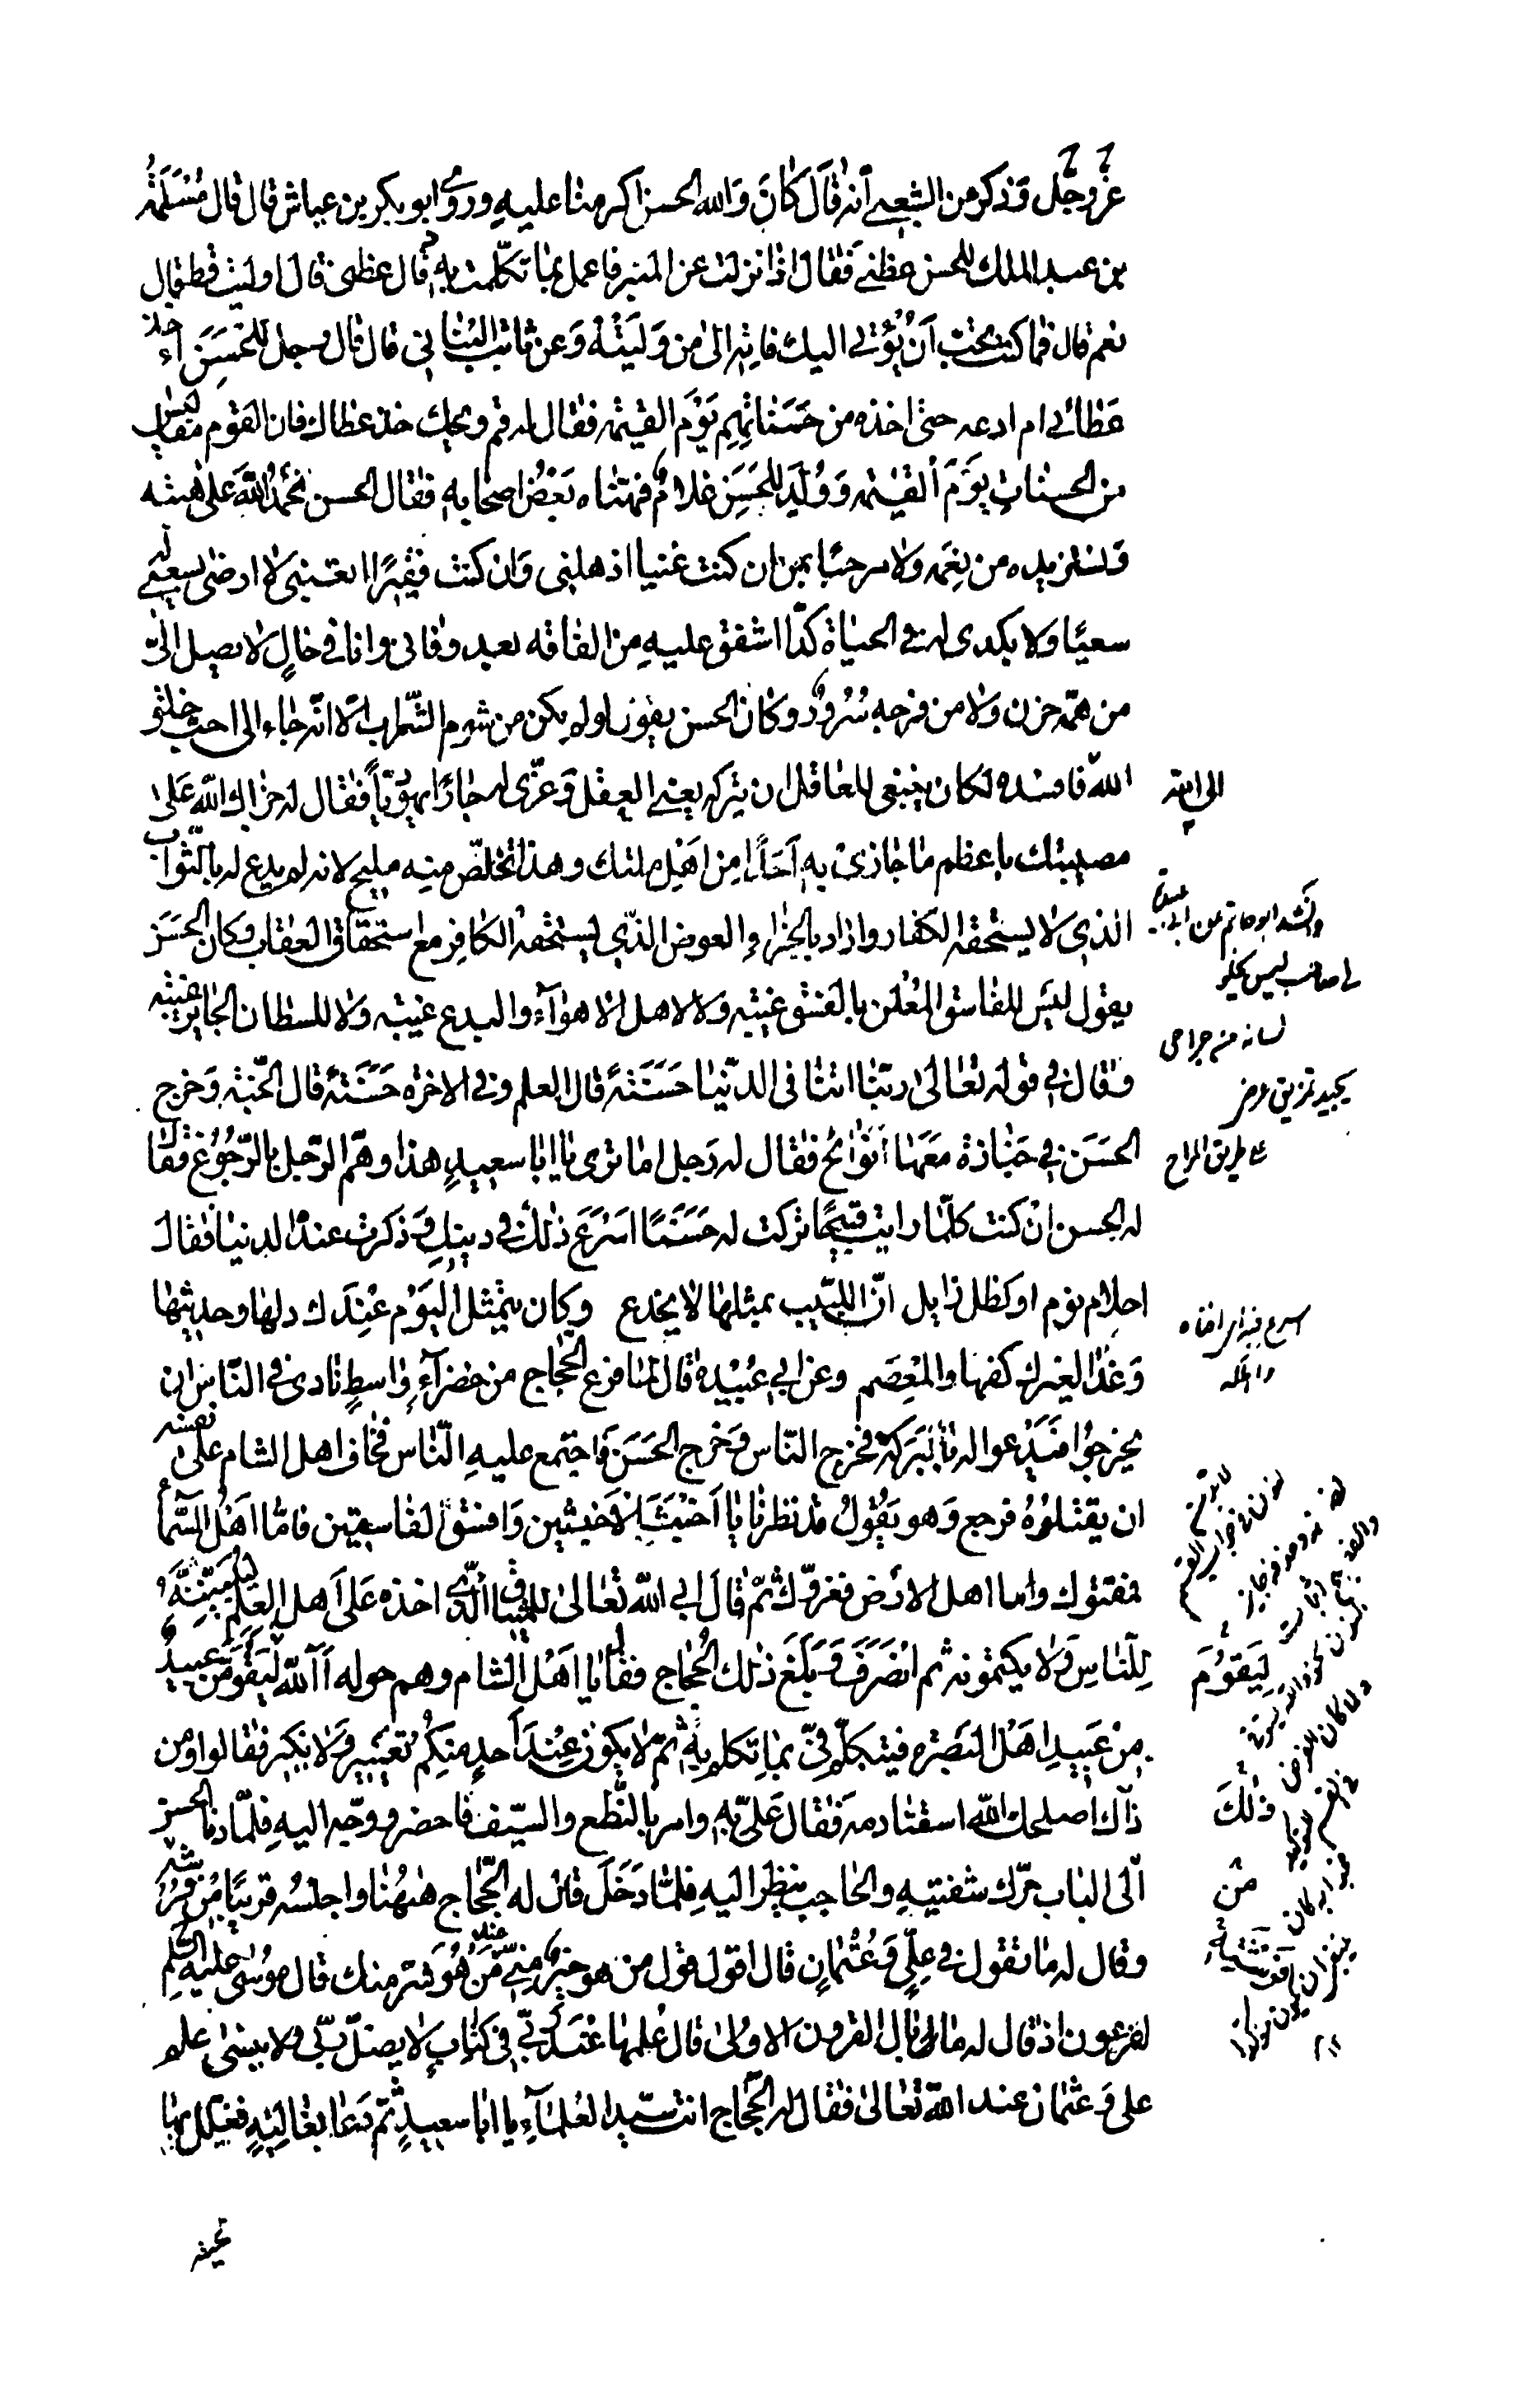 عز وجل وذكر من الشعبي أنه قال كان والله الحسن اكرمنا عليه وروى ابو بكر بن عياش قال قال مسلمة
بن عبد الملك للحسن عظني فقال اذا نزلت عن المنبر فاعمل بما تكلمت به قال عظني قال اوليت قط قال
نعم قال فما كنت تحب أن يؤتى اليك فاته الى من وليته وعن ثابت البناني قال قال رجل للحسن آخذ
عطائي ام ادعه حتى اخذه من حسناتهم يوم القيمة فقال له قم ويحك خذ عطاك فان القوم مفاليس
من الحسنات يوم القيمة وولد للحسن غلام فهناه بعض اصحابه فقال الحسن نحمد الله على هبته
ونستزيده من نعمه ولا مرحبا بمن ان كنت غنيا اذهلني وان كنت فقيرا اتعبني لا ارضى بسعيي له
سعيا ولا بكدي له في الحياة كدا اشفق عليه من الفاقه بعد وفاتي وانا في حال لا يصل الي
من همه حزن ولا من فرحه سرور وكان الحسن يقول لو لم يكن من شوم الشراب الا انه جاء الى احب خلق
الله فافسده لكان ينبغي للعاقل ان يتركه يعني العقل وعزى له جارا يهوديا فقال له جزاك الله على
مصيبتك باعظم ما جازى به احدا من اهل ملتك وهذا تخلص منه مليح لانه لم يدع له بالثواب
الذي لا يستحقه الكفار واراد بالجزاء العوض الذي يستحقه الكافر مع استحقاق العقاب وكان الحسن
يقول ليس للفاسق المعلن بالفسق غيبة ولا لاهل الاهواء والبدع غيبة ولا للسلطان الجائر غيبة
وقال في قوله تعالى ربنا اتنا في الدنيا حسنة قال العلم وفي الاخرة حسنة قال الجنة وخرج
الحسن في جنازة معها نوائح فقال له رجل اما ترى يا ابا سعيد هذا وهم الرجل بالرجوع فقا
له الحسن ان كنت كلما رايت قبيحا تركت له حسنا اسرع ذلك في دينك وذكرت عنده الدنيا فقال
احلام نوم او كظل زايل ان اللبيب بمثلها لا يخدع وكان يتمثل اليوم عندك دلها وحديثها
وغدا لغيرك كفها والمعصم وعن ابي عبيدة قال لما فرغ الحجاج من خضراء واسط نادى في الناس ان
يخرجوا فيدعوا له بالبركة فخرج الناس وخرج الحسن فاجتمع عليه الناس فخاف اهل الشام على نفسه
ان يقتلوه فرجع وهو يقول قد نظرنا يا اخبث الاخبثين وافسق الفاسقين فاما اهل السماء
فمقتوك واما اهل الارض فغروك ثم قال ابى الله تعالى للميثاق الذي اخذه على اهل العلم ليبيننه
للناس ولا يكتمونه ثم انصرف وبلغ ذلك الحجاج فقال يا اهل الشام وهم حوله آالله ليقومن عبيد
من عبيد اهل البصرة فيتكلم في بما تكلم به ثم لا يكون عند احد منكم تغيير ولا نكير فقالوا ومن
ذاك اصلحك الله اسقنا دمه فقال علي به وامر بالنطع والسيف فاحضر ووجه اليه فلما دنا الحسن
الى الباب حرك شفتيه والحاجب ينظر اليه فلما دخل قال له الحجاج ههنا واجلسه قريبا من فرشه
وقال له ما تقول في علي وعثمان قال اقول قول من هو خير مني عند من هو شر منك قال موسى عليه السلم
لفرعون اذ قال له ما بال القرون الاولى قال علمها عند ربي في كتاب لا يضل ربي ولا ينسى علم
علي وعثمان عند الله تعالى فقال له الحجاج انت سيد العلماء يا ابا سعيد ثم دعا بغالية فغلل بها
وانشد ابو حاتم عن ابي عبيدة
ليقوم
ذلك
من
لحيته